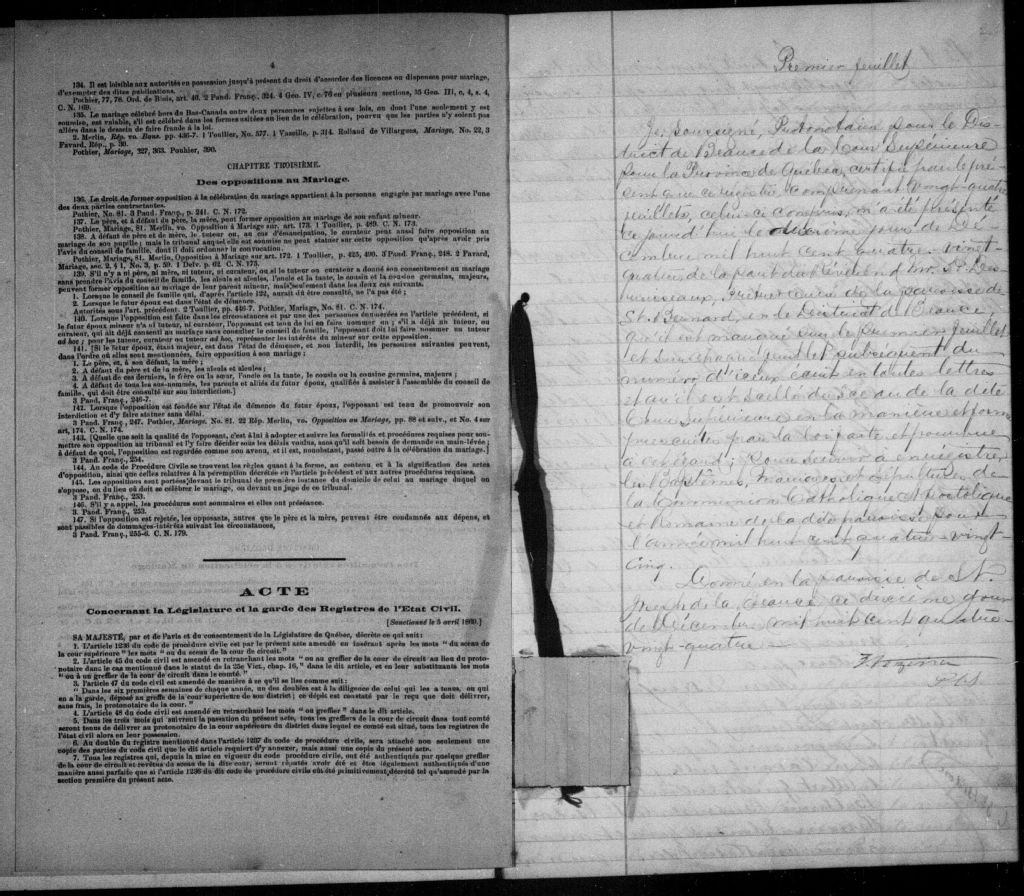 4
134. Il est loisible aux autorités en possession jusqu'à présent du droit d'accorder des licences ou dispenses pour mariage,
d'exempter des dites publications.
Pothier, 77, 78. Ord. de Blois, art. 40. 2 Pand. Franç., 324. 4 Geo. IV, c. 76 en plusieurs sections, 35 Geo. III, c, 4, s. 4,
C. N. 169.
135. Le mariage célébré hors du Bas-Canada entre deux personnes sujettes à ses lois, ou dont l'une seulement y est
soumise, est valable, s'il est célébré dans les formes usitées au lieu de la célébration, pourvu que les parties n'y soient pas
allées dans le dessein de faire fraude à la loi.
2. Merlin, Rép. vo. Bans. pp. 436-7. 1 Toullier, No. 577. 1 Vazeille, p. 314. Rolland de Villargues, Mariage, No. 22, 3
Favard, Rép., p. 30.
Pothier, Mariage, 327, 363. Pouhier, 390.
CHAPITRE TROISIÈME.
Des oppositions au Mariage.
136. Le droit de former opposition à la célébration du mariage appartient à la personne engagée par mariage avec l'une
des deux parties contractantes.
Pothier, No. 81. 3 Pand. Franç., p. 241. C. N. 172.
137. Le père, et à défaut du père, la mère, peut former opposition au mariage de son enfant mineur.
Pothier, Mariage, 81. Merlin, vo. Opposition à Mariage sur. art. 173. 1 Toullier, p. 489. C. N. 173.
138. A défaut de père et de mère, le tuteur ou, au cas d'émancipation, le curateur peut aussi faire opposition au
mariage de son pupille; mais le tribunal auquel elle est soumise ne peut statuer sur cette opposition qu'après avoir pris
l'avis du conseil de famille, dont il doit ordonner la convocation.
Pothier, Mariage, 81. Merlin, Opposition à Mariage sur art. 172. 1 Toullier, p. 425, 490. 3 Pand. Franç., 248. 2 Favard,
Mariage, sec. 2, § 1, No. 3, p. 59. 1 Delv. p. 62. C. N. 175.
139. S'il n'y a ni père, ni mère, ni tuteur, ni curateur, ou si le tuteur ou curateur a donné son consentement au mariage
sans prendre l'avis du conseil de famille, les aïeuls et aïeules, l'oncle et la tante, le cousin et la cousine germains, majeurs,
peuvent former opposition au mariage de leur parent mineur, mais seulement dans les deux cas suivants.
1. Lorsque le conseil de famille qui, d'après l'article 122, aurait dû être consulté, ne l'a pas été;
2. Lorsque le futur époux est dans l'état de démence.
Autorités sous l'art. précédent. 2 Toullier, pp. 446-7. Pothier, Mariage, No. 81. C. N. 174.
140. Lorsque l'opposition est faite dans les circonstances et par une des personnes énumérées en l'article précédent, si
le futur époux mineur n'a ni tuteur, ni curateur, l'opposant est tenu de lui en faire nommer un; s'il a déjà un tuteur, ou
curateur, qui ait déjà consenti au mariage sans consulter le conseil de famille, l'opposant doit lui faire nommer un tuteur
ad hoc; pour les tuteur, curateur ou tuteur ad hoc, représenter les intérêts du mineur sur cette opposition.
141. [Si le futur époux, étant majeur, est dans l'état de démence, et non interdit, les personnes suivantes peuvent,
dans l'ordre où elles sont mentionnées, faire opposition à son mariage:
1. Le père, et, à son défaut, la mère;
2. A défaut du père et de la mère, les aïeuls et aïeules;
3. A défaut de ces derniers, le frère ou la sœur, l'oncle ou la tante, le cousin ou la cousine germains, majeurs;
4. A défaut de tous les sus-nommés, les parents et alliés du futur époux, qualifiés à assister à l'assemblée du conseil de
famille, qui doit être consulté sur son interdiction.]
3 Pand. Franç., 246-7.
142. Lorsque l'opposition est fondée sur l'état de démence du futur époux, l'opposant est tenu de promouvoir son
interdiction et d'y faire statuer sans délai.
3 Pand. Franç., 247. Pothier, Mariage. No. 81. 22 Rép. Merlin, vo. Opposition au Mariage, pp. 88 et suiv., et No. 4 sur
art. 174. C. N. 174.
143. [Quelle que soit la qualité de l'opposant, c'est à lui à adopter et suivre les formalités et procédures requises pour sou-
mettre son opposition au tribunal et l'y faire décider sous les délais voulus, sans qu'il soit besoin de demande en main-levée;
à défaut de quoi, l'opposition est regardée comme non avenu, et il est, nonobstant, passé outre à la célébration du mariage.]
3 Pand. Franç., 254.
144. Au code de Procédure Civile se trouvent les règles quant à la forme, au contenu et à la signification des actes
d'opposition, ainsi que celles relatives à la péremption décrétée en l'article précédent et aux autres procédures requises.
145. Les oppositions sont portées devant le tribunal de première instance du domicile de celui au mariage duquel on
s'oppose, ou du lieu où doit se célébrer le mariage, ou devant un juge de ce tribunal.
3 Pand. Franç., 253.
146. S'il y a appel, les procédures sont sommaires et elles ont préséance.
3 Pand. Franç., 253.
147. Si l'opposition est rejetée, les opposants, autres que le père et la mère, peuvent être condamnés aux dépens, et
sont passibles de dommages-intérêts suivant les circonstances,
3 Pand. Franç., 255-6. C. N. 179.
ACTE
Concernant la Législature et la garde des Registres de l'Etat Civil.
[Sanctionné le 5 avril 1869.]
SA MAJESTÉ, par et de l'avis et du consentement de la Législature de Québec, décrète ce qui suit:
1. L'article 1236 du code de procédure civile est par le présent acte amendé en insérant après les mots "du sceau de
la cour supérieure" les mots "ou du sceau de la cour de circuit."
2. L'article 45 du code civil est amendé en retranchant les mots "ou au greffier de la cour de circuit au lieu du proto-
notaire dans le cas mentionné dans le statut de la 25e Vict., chap. 16," dans le dit article, et en leur substituant les mots
"ou à un greffier de la cour de circuit dans le comté."
3. L'article 47 du code civil est amendé de manière à ce qu'il se lise comme suit:
"Dans les six premières semaines de chaque année, un des doubles est à la diligence de celui qui les a tenus, ou qui
en a la garde, déposé au greffe de la cour supérieure de son district; ce dépôt est constaté par le reçu que doit délivrer,
sans frais, le protonotaire de la cour."
4. L'article 48 du code civil est amendé en retranchant les mots "ou greffier" dans le dit article.
5. Dans les trois mois qui suivront la passation du présent acte, tous les greffiers de la cour de circuit dans tout comté
seront tenus de délivrer au protonotaire de la cour supérieure du district dans lequel ce comté est situé, tous les registres de
l'état civil alors en leur possession.
6. Au double du registre mentionné dans l'article 1237 du code de procédure civile, sera attaché non seulement une
copie des parties du code civil que le dit article requiert d'y annexer, mais aussi une copie du présent acte.
7. Tous les registres qui, depuis la mise en vigueur du code procédure civile, ont été authentiqués par quelque greffier
de la cour de circuit et revêtus du sceau de la dite cour, seront réputés avoir été et être légalement authentiqués d'une
manière aussi parfaite que si l'article 1236 du dit code de procédure civile eût été primitivement décrété tel qu'amendé par la
section première du présent acte.
Premier feuillet
Je, Soussigné, Protonotaire pour le Dis-
trict de Beauce de la Cour Supérieure
pour la Province de Québec, certifie par le pré-
sent que ce registre comprenant vingt-quatre
feuillets, celui-ci compris, m'a été présenté
ce jourd'hui le deuxième jour de Dé-
cembre mil huit cent quatre-vingt-
quatre de la part du Révérend Mr.
Prêtre Curé de la paroisse de
St. Bernard, en le District de Beauce,
qu'il est marqué sur le premier feuillet
et sur chaque feuillet subséquent du
numéro d'iceux écrit en toutes lettres
et qu'il est scellé du sceau de la dite
Cour Supérieure en la manière et forme
prescrites par la loi faite et pourvue
à cet égard; Pour servir à enregistrer
les Baptêmes, mariages et sépultures de
la Communion Catholique Apostolique
et Romaine de la dite paroisse pour
l'année mil huit cent quatre-vingt-
cinq.
Donné en la paroisse de St.
Joseph de la Beauce ce deuxième jour
de Décembre mil huit cent quatre-
vingt-quatre
P.C.S.